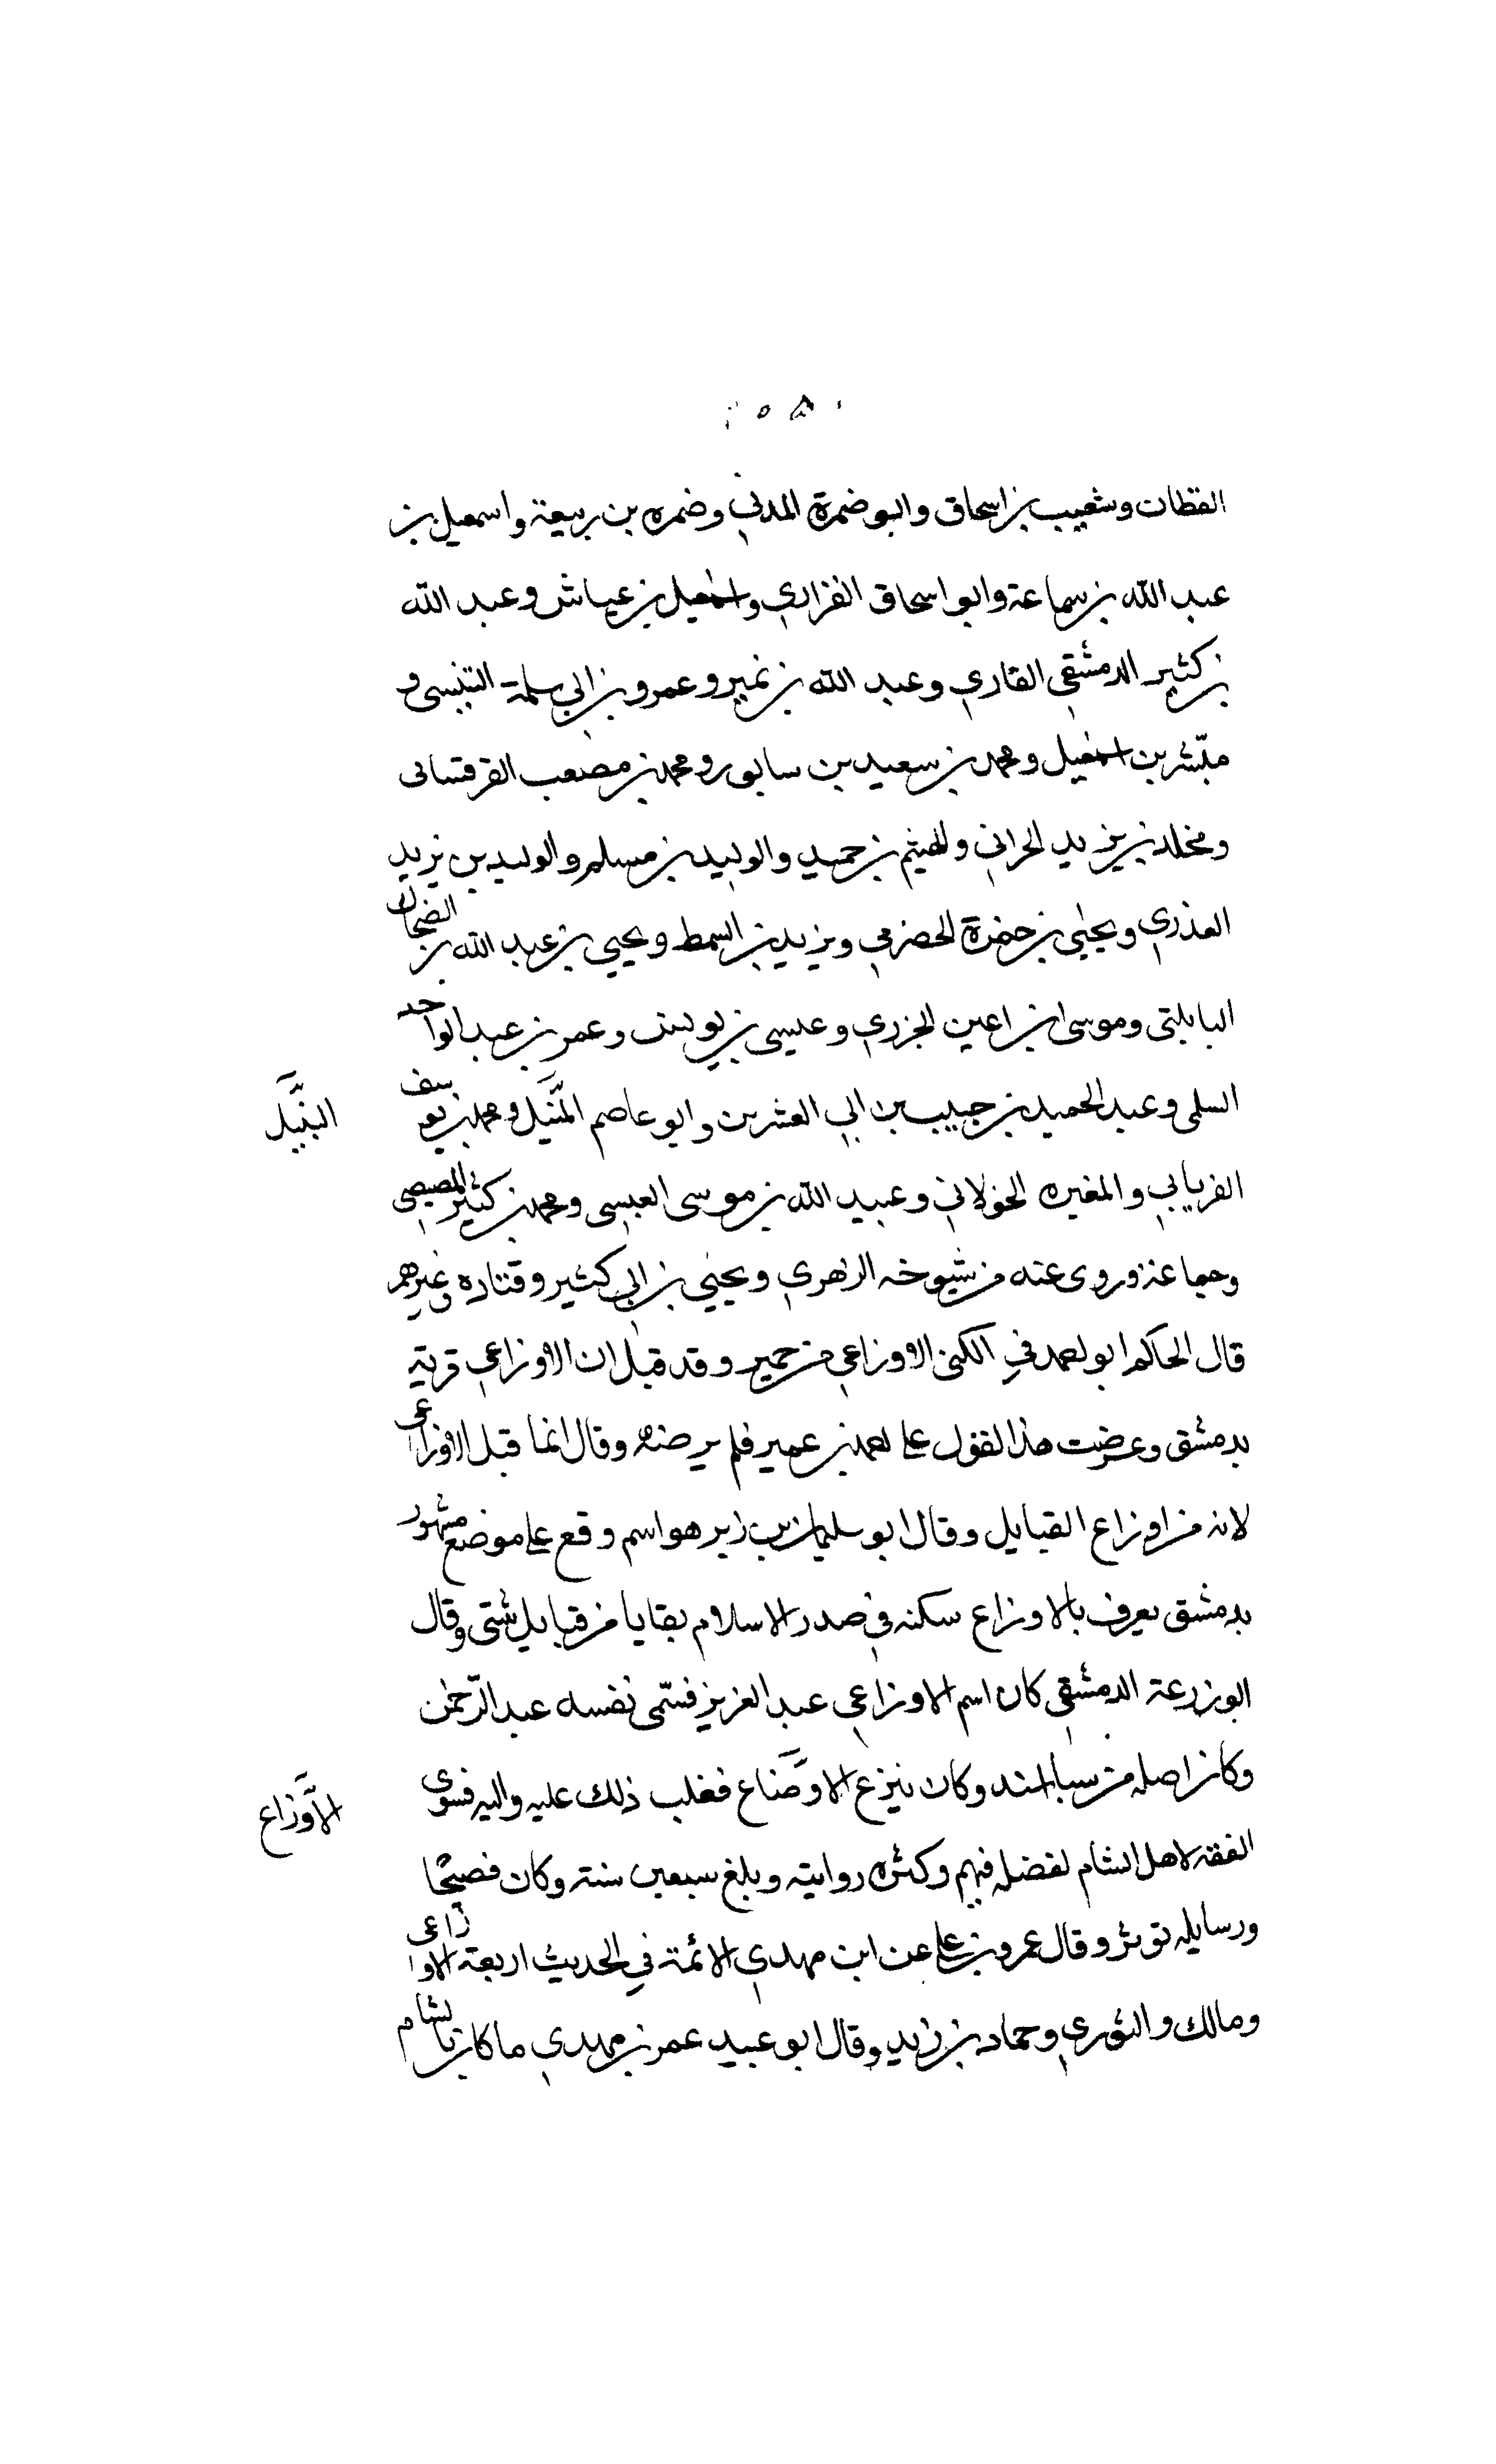 القطان وشعيب بن اسحاق وابو ضمرة المدني وضمره بن ربيعة واسمعيل بن
عبد الله بن سماعة وابو اسحاق الفزاري واسمعيل بن عياش وعبد الله
بن كثير الدمشقي القاري وعبد الله بن نمير وعمرو بن ابي سلمة التنيسي و
مبشر بن اسمعيل ومحمد بن سعيد بن سابور ومحمد بن مصعب القرقساني
ومخلد بن يزيد الحراني والهيثم بن حميد والوليد بن مسلم والوليد بن يزيد
العذري ويحيى بن حمزة الحضرمي ويزيد بن السمط ويحيي بن عبد الله بن الضحاك
البابلتي وموسى ابن اعين الجزري وعيسى بن يونس وعمر بن عبد الواحد
السلمي وعبد الحميد بن حبيب بن ابي العشرين وابو عاصم المنيل ومحمد بن يوسف
النبيل
الفريابي والمغيره الخولاني وعبيد الله بن موسى العبسي ومحمد بن كثير المصيصي
وجماعة وروى عنه من شيوخه الزهري ويحيي بن ابي كثير وقتاده وغيرهم
قال الحاكم ابو احمد في الكنى الاوزاعي من حمير وقد قيل ان الاوزاعي قرية
بدمشق وعرضت هذا القول على احمد بن عمير فلم يرضه وقال انما قيل الاوزاعي
لانه من اوزاع القبايل وقال ابو سليمان بن زبر هو اسم وقع على موضع مشهور
بدمشق يعرف بالاوزاع سكنه في صدر الاسلام بقايا من قبايل شتى وقال
ابو زرعة الدمشقي كان اسم الاوزاعي عبد العزيز فسمى نفسه عبد الرحمن
وكان اصله من سبا الهند وكان ينزع الاوضاع فغلب ذلك عليه واليه فتوى
الاوزاع
الفقه لاهل الشام لفضله فيهم وكثره روايته وبلغ سبعين سنة وكان فصيحا
ورسايله توثر وقال عمرو بن علي عن ابن مهدي الائمة في الحديث اربعة الاوزاعي
ومالك والثوري وحماد بن زيد وقال ابو عبيد عمر بن مهدي ما كان بالشام